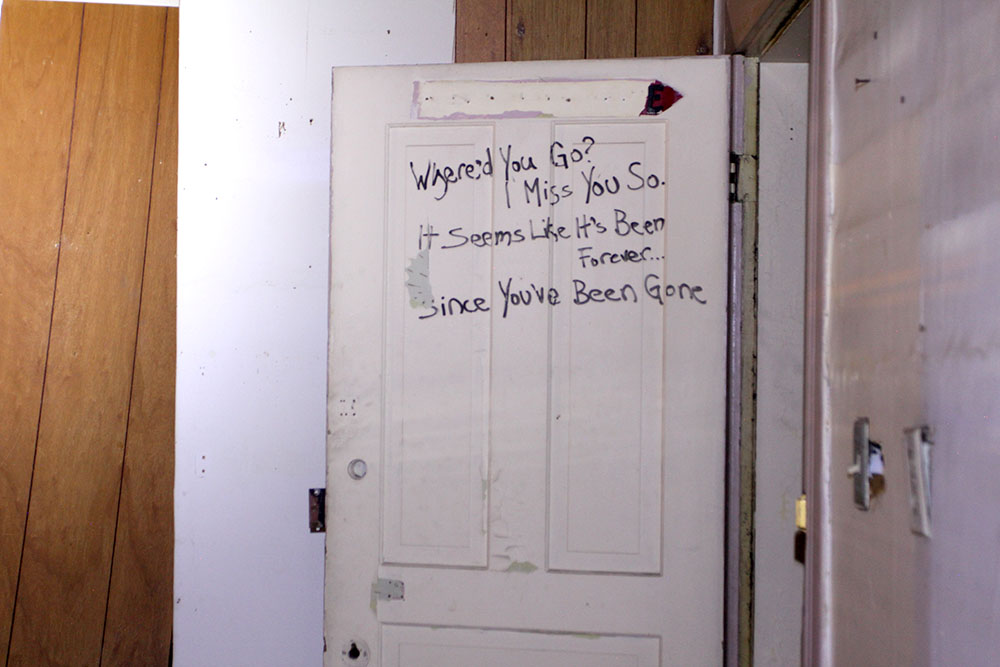 Where'd You Go?
I Miss You So.
It Seems Like It's Been
Forever...
Since You've Been Gone